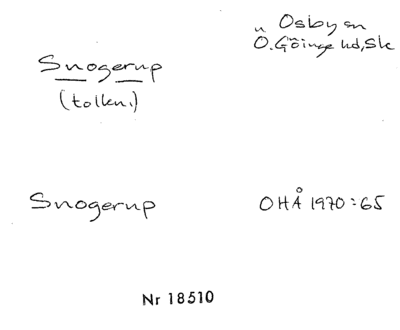 Osby sn
Ö. Göinge hd, Sk
Snogerup
(tolkn.)
Snogerup
OHÅ 1970:65
Nr 18510